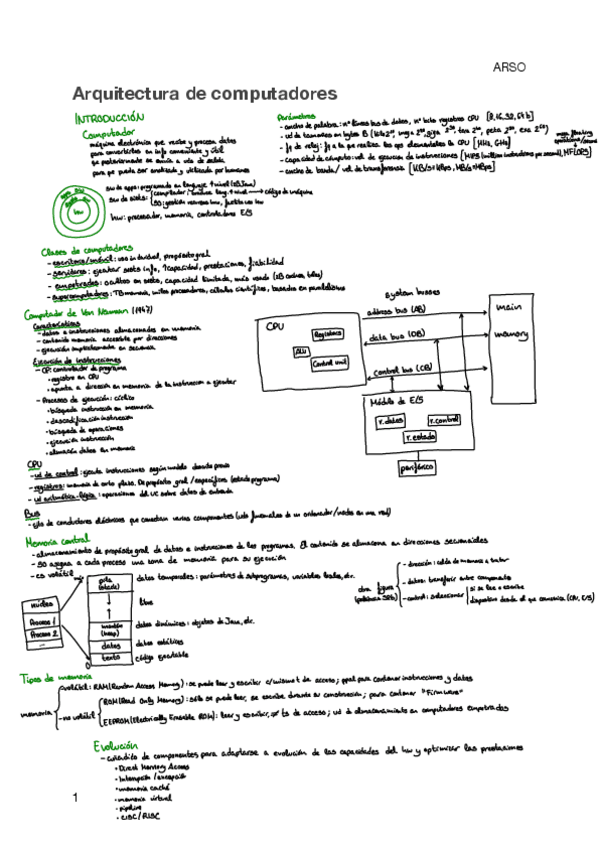 ARSO
Arquitectura de computadores
INTRODUCCIÓN
Computador
máquina electrónica que recibe y procesa datos
para convertirlos en info conveniente y útil
que posteriormente se envía a uds de salida
para que pueda ser analizada y utilizada por humanos
Parámetros
- ancho de palabra: nº líneas bus de datos, nº bits registros CPU [8, 16, 32, 64 b]
- ud de tamaño en bytes B
- capacidad de cómputo: vel de ejecución de instrucciones
- ancho de banda / vel de transferencia
sw de apps: programado en lenguaje
sw de sists:
código de máquina
hw: procesador, memoria, controladores E/S
Clases de computadores
- escritorio/móvil: uso individual, propósito gral
- servidores: ejecutar sists info, ↑capacidad, prestaciones, fiabilidad
- empotrados: ocultos en sists, capacidad limitada, más usado
- supercomputadores: TB memoria, miles procesadores, cálculos científicos, basados en paralelismo
Computador de Von Neumann (1947)
Características
- datos e instrucciones almacenados en memoria
- contenido memoria accesible por direcciones
- ejecución implícitamente en secuencia
Ejecución de instrucciones
- CP: contador de programa
• registro en CPU
• apunta a dirección en memoria de la instrucción a ejecutar
- Procesos de ejecución: cíclico
• búsqueda instrucción en memoria
• descodificación instrucción
• búsqueda de operaciones
• ejecución instrucción
• almacén datos en memoria
system buses
CPU
Registers
ALU
Control unit
address bus (AB)
data bus (DB)
control bus (CB)
main
memory
Módulo de E/S
r. datos
r. control
r. estado
periférico
CPU
- ud de control: ejecuta instrucciones según modelo
- registros: memoria de corto plazo. De propósito gral / específicos (estado programa)
- ud aritmético-lógica: operaciones del UC sobre datos de entrada
Bus
- cjto de conductores eléctricos que conectan varios componentes
Memoria central
- almacenamiento de propósito gral de datos e instrucciones de los programas. El contenido se almacena en direcciones secuenciales
- SO asigna a cada proceso una zona de memoria para su ejecución
- es volátil
núcleo
Proceso 1
Proceso 2
...
pila
(stack)
datos temporales: parámetros de subprogramas, variables locales, etc.
libre
montón
(heap)
datos dinámicos: objetos de Java, etc.
datos
datos estáticos
texto
código ejecutable
0
otra figura
- dirección: celda de memoria a tratar
- datos: transferir entre componentes
- control: seleccionar
si se lee o escribe
dispositivo desde el que comunica (CPU, E/S)
Tipos de memoria
memoria
- volátil: RAM (Random Access Memory): se puede leer y escribir c/ mismo t de acceso; ppal para contener instrucciones y datos
- no volátil
ROM (Read Only Memory): sólo se puede leer, se escribe durante su construcción; para contener "Firmware"
EEPROM (Electrically Erasable ROM): leer y escribir, ts de acceso; ud de almacenamiento en computadores empotrados
Evolución
- de componentes para adaptarse a evolución de las capacidades del hw y optimizar las prestaciones
• Direct Memory Access
• Interrupción / excepción
• memoria caché
• memoria virtual
• pipeline
• CISC / RISC
1